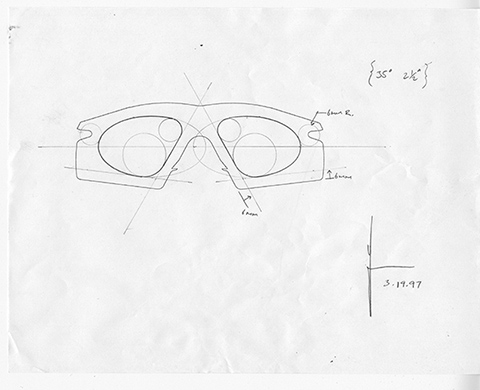 {35° 2½°}
6mm R.
6mm
6mm
3.19.97